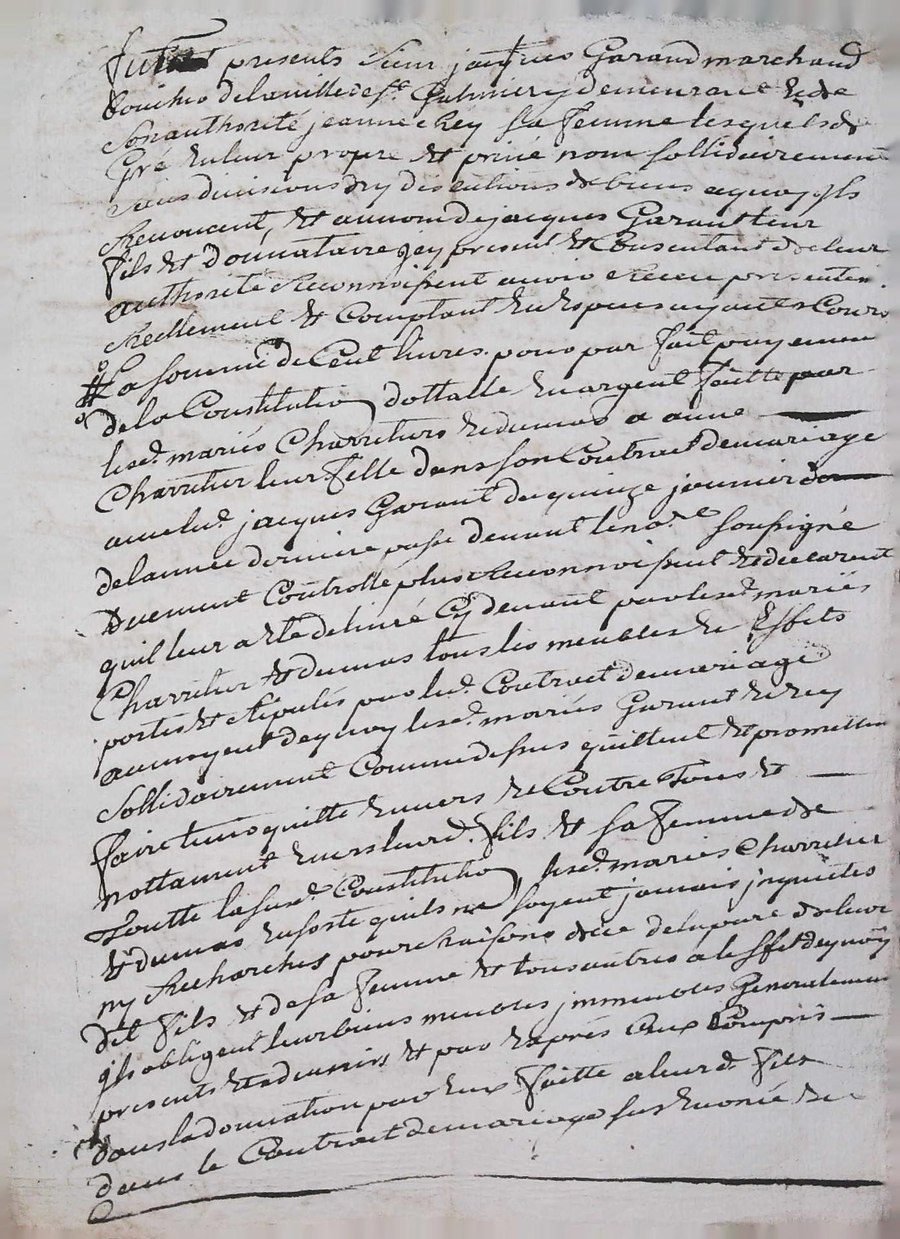 furent presents sieur jacques Garand marchand
boucher de la ville de st. Galmier y demeurant & de
son authorité jeanne Rey sa femme lesquels de
Gré en leur propre & privé nom sollidairement
sans divisions ny discutions de biens aquoy jls
Renoncent, & au nom de jacques Garant leur
fils & donnataire jcy present & Consentant de leur
authorité Reconnoissent avoir Receu presentem
Reellement & Comptant en Especes ayants Cours
La somme de Cent livres pour parfait payement
de la Constitution dottalle en argent faitte par
lesd. mariés Charretier & dumas a anne
Charretier leur fille dans son Contract de mariage
avec led. jacques Garant du quinze janvier de
de lannée derniere passé devant le nore. soussigné
Duement Controllé plus Reconnoissent & declarent
quil leur a Eté delivré Cy devant par lesd. mariés
Charretier & dumas tous les meubles & Effets
portés & stipulés par led. Contract de mariage
au moyent de quoy lesd. mariés Garant & Rey
sollidairement Comme dessus quittent & promettent
faire tenir quitte Envers & Contre Tous &
nottament Envers leurd. fils & sa femme de
Toutte la susd. Constitution, lesd. mariés Charretier
& dumas, En sorte quils ne soyent jamais jnquietés
ny Recharchés pour Raisons de ce de la part de leur
dit fils & de sa femme & tous autres a leffet de quoy
jls obligent leurs biens meubles jmmeubles Generalement
presents & advenirs & par Exprés Ceux Compris
dans la donnation par Eux faitte a leurd. fils
dans le Contract de mariage sus Enoncé &